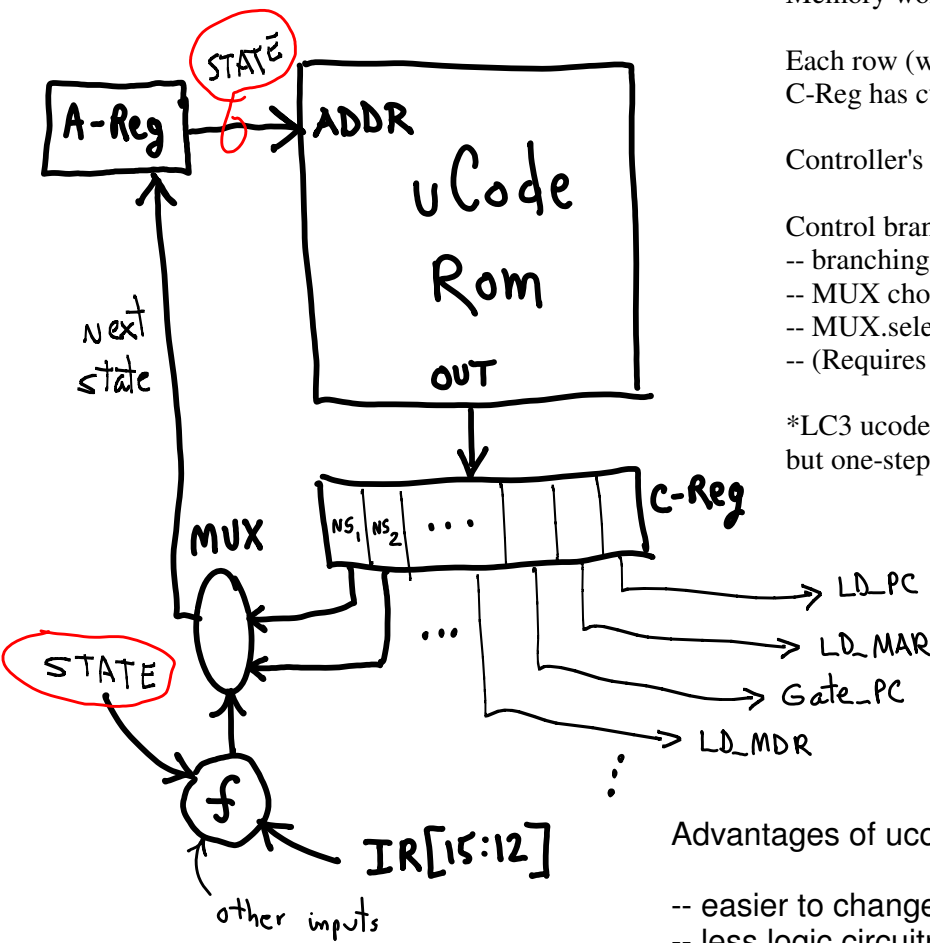 Memory wo
Each row (w
C-Reg has c
Controller's
Control bran
-- branching
-- MUX cho
-- MUX.sele
-- (Requires
*LC3 ucode
but one-step
STATE
A-Reg
ADDR
uCode
Rom
OUT
Next
state
C-Reg
NS1 NS2 ...
MUX
...
LD_PC
LD_MAR
Gate_PC
LD_MDR
STATE
f
IR[15:12]
other inputs
Advantages of uco
-- easier to change
-- less logic circuitr